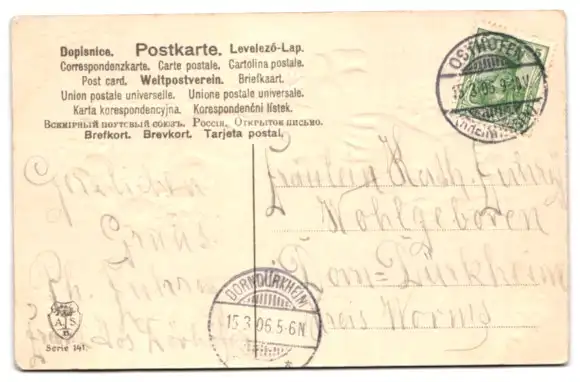 Dopisnice. Postkarte. Levelező-Lap.
Correspondenzkarte. Carte postale. Cartolina postale.
Post card. Weltpostverein. Briefkaart.
Union postale universelle. Unione postale universale.
Karta korespondencyjna. Korespondenční listek.
Всемірный почтовый союзъ. Россія. Открытое письмо.
Brefkort. Brevkort. Tarjeta postal.
OSTHOFEN
15.3.06. 9-
(RHEINHESSEN)
Fräulein Kath.
Wohlgeboren
Dorn=Dürkheim
Kreis Worms
Gruss
DORNDÜRKHEIM
15.3.06.5-6N
A S
B
Serie 141.